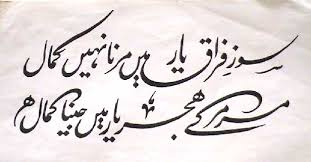 سوزِ فراق یار میں مرنا نہیں کمال
مر مر کے ھجر یار میں جینا کمال ھے